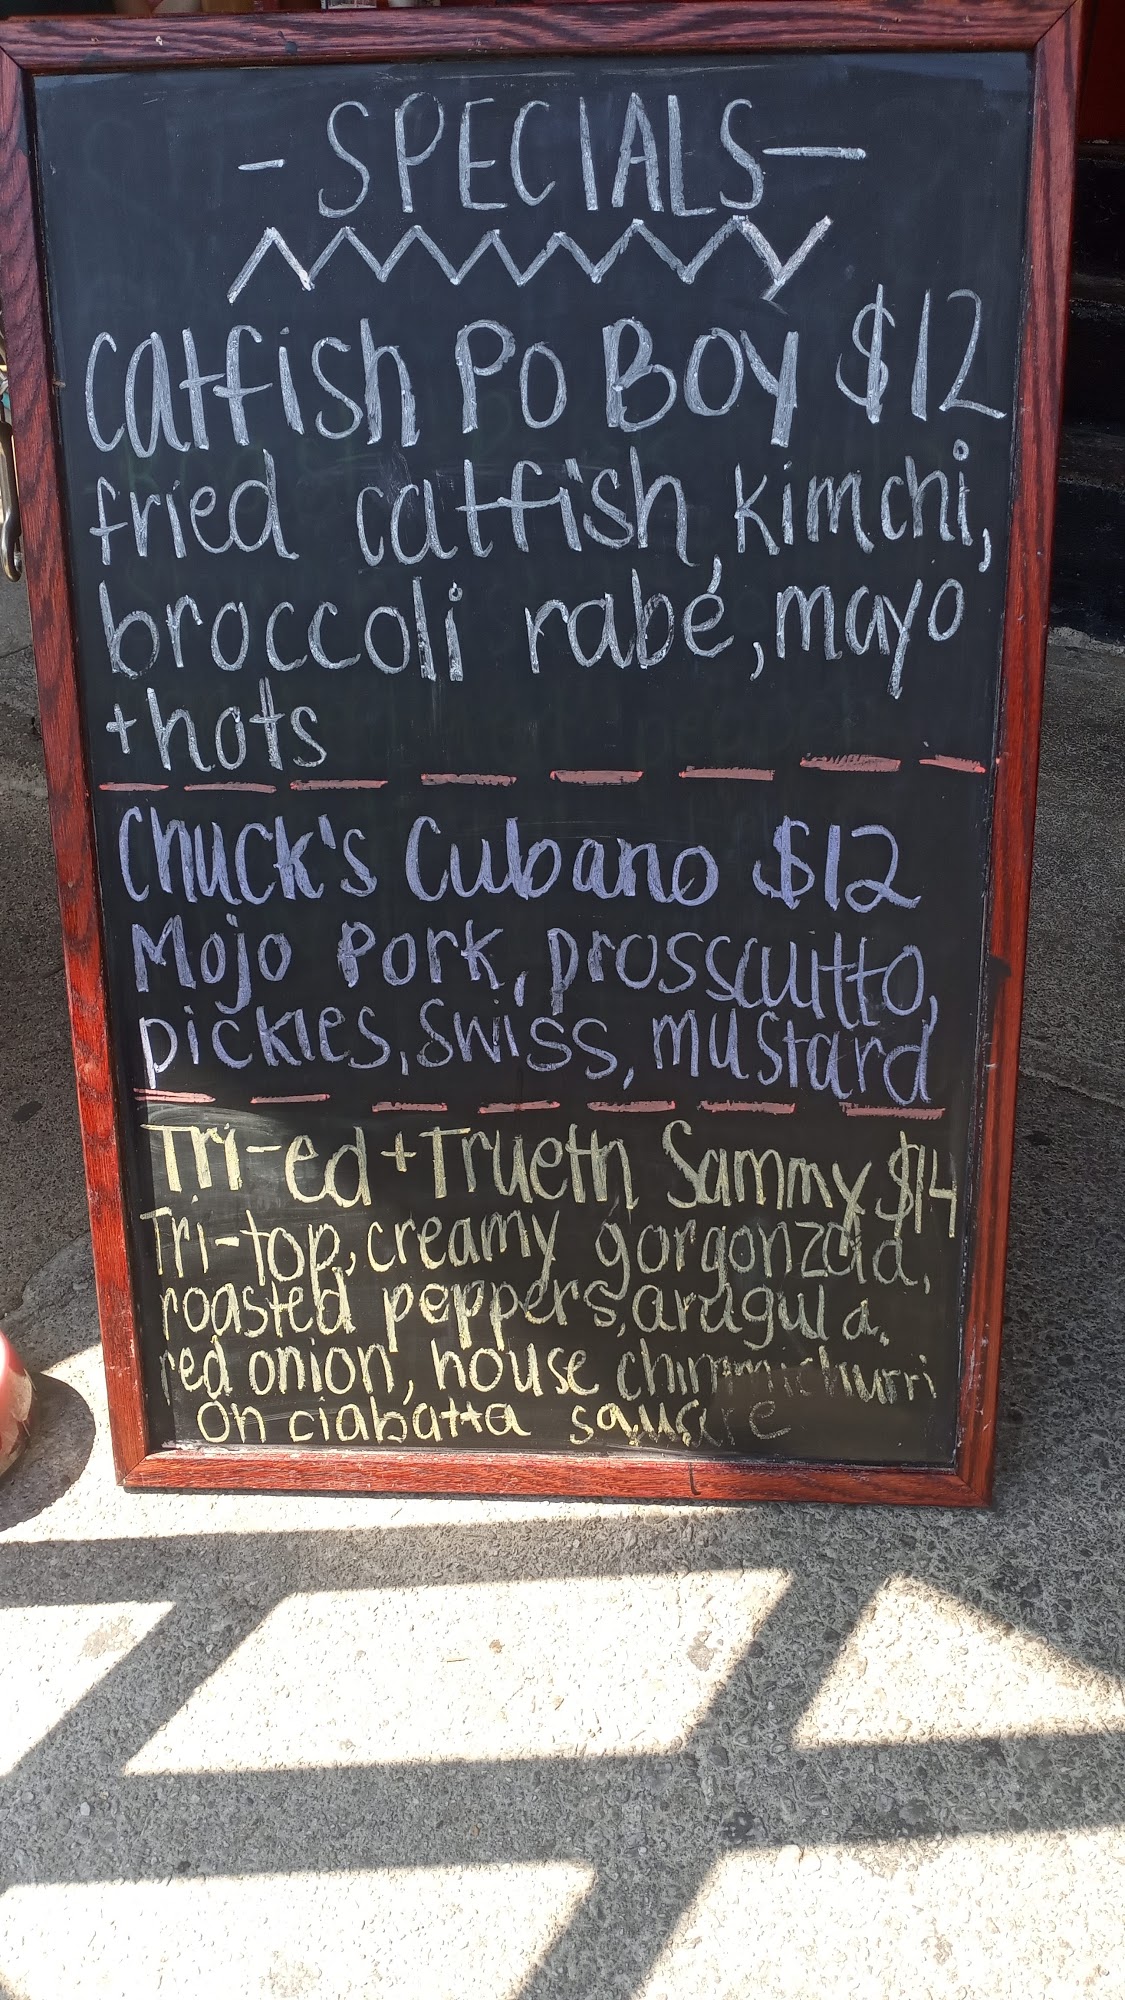 - SPECIALS —
Catfish Po Boy $12
fried catfish, kimchi,
broccoli rabé, mayo
+ hots
Chuck's Cubano $12
Mojo Pork, prosscuitto,
pickles, swiss, mustard
Tri-ed + Trueth Sammy $14
Tri-top, creamy gorgonzola,
roasted peppers, arugula,
red onion, house chimmichurri
on ciabatta square